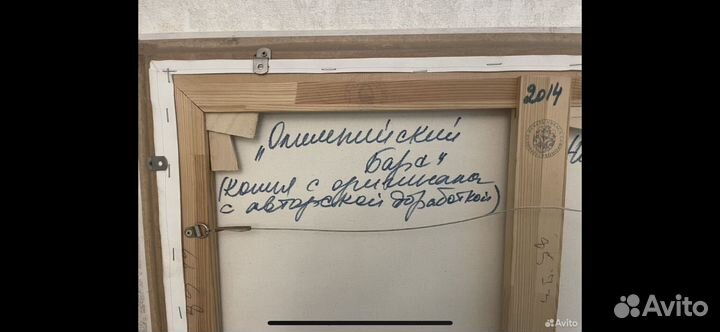 2014
„Олимпийский
барс"
(копия с оригинала
с авторской доработкой)
Avito
Avito